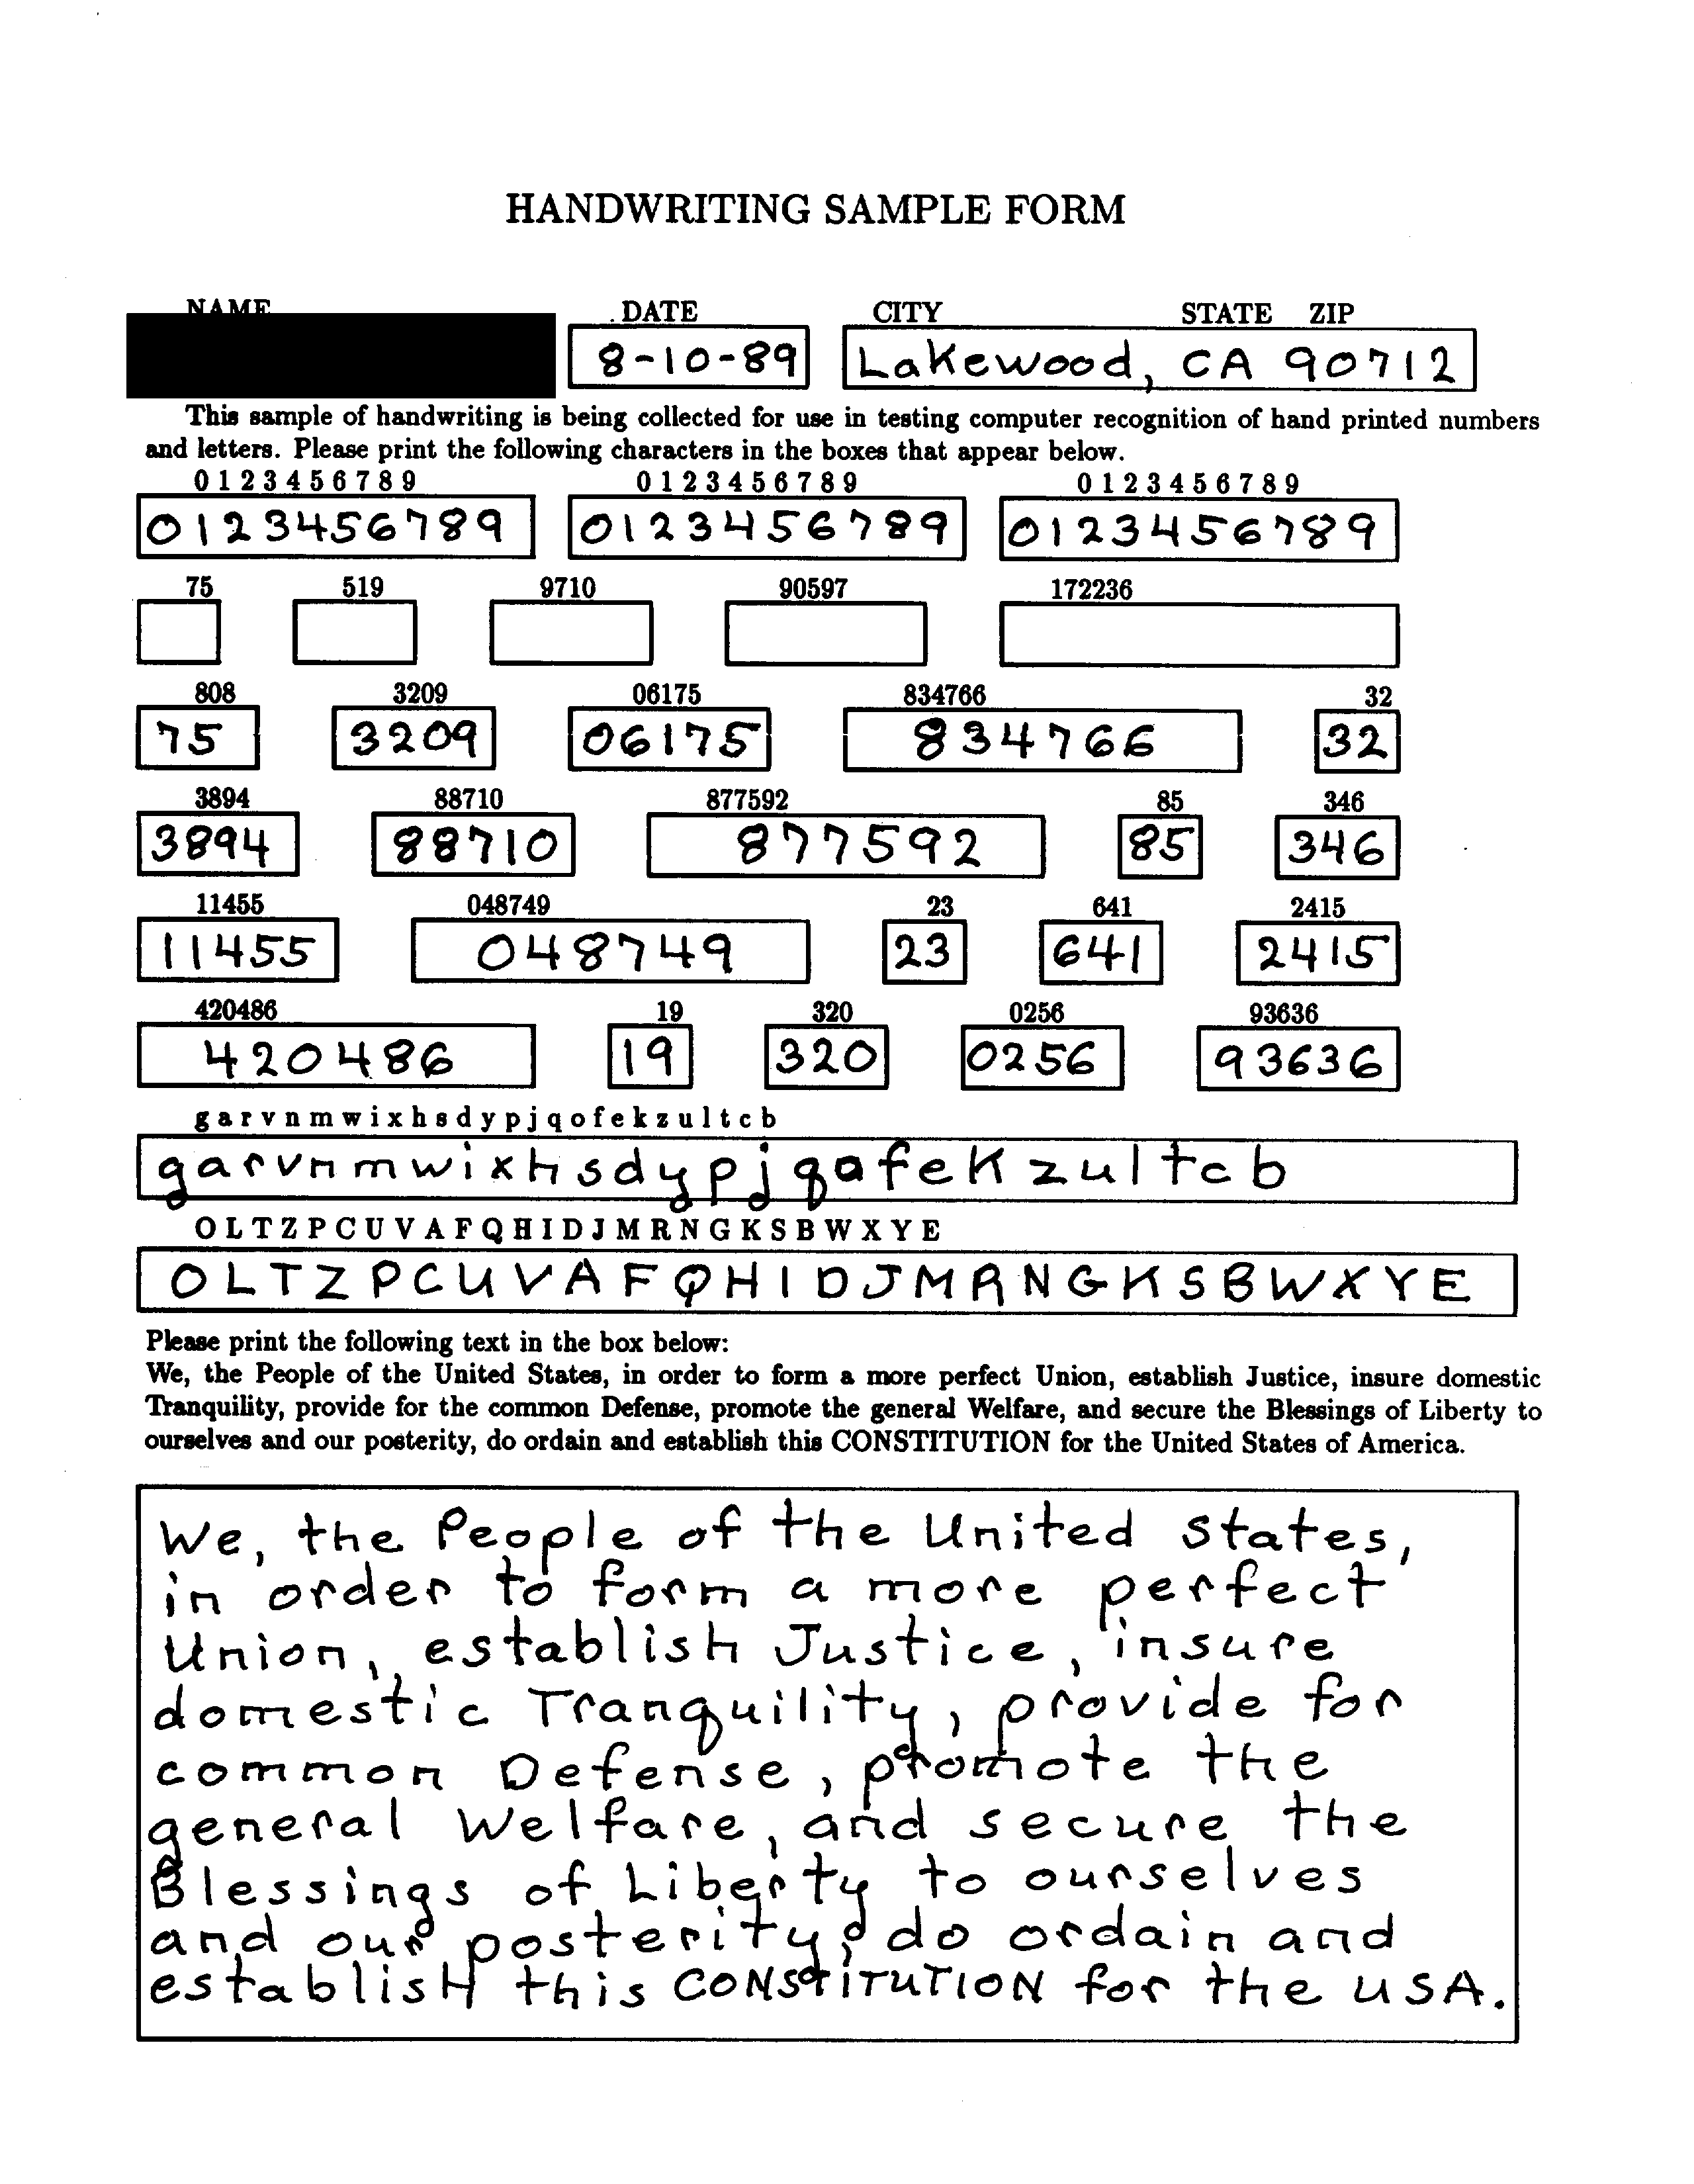 HANDWRITING SAMPLE FORM
NAME DATE CITY STATE ZIP
8-10-89 Lakewood, CA 90712
This sample of handwriting is being collected for use in testing computer recognition of hand printed numbers
and letters. Please print the following characters in the boxes that appear below.
0 1 2 3 4 5 6 7 8 9 0 1 2 3 4 5 6 7 8 9 0 1 2 3 4 5 6 7 8 9
0123456789 0123456789 0123456789
75 519 9710 90597 172236
808 3209 06175 834766 32
75 3209 06175 834766 32
3894 88710 877592 85 346
3894 88710 877592 85 346
11455 048749 23 641 2415
11455 048749 23 641 2415
420486 19 320 0256 93636
420486 19 320 0256 93636
g a r v n m w i x h s d y p j q o f e k z u l t c b
g a r v n m w i x h s d y p j q o f e k z u l t c b
O L T Z P C U V A F Q H I D J M R N G K S B W X Y E
O L T Z P C U V A F Q H I D J M R N G K S B W X Y E
Please print the following text in the box below:
We, the People of the United States, in order to form a more perfect Union, establish Justice, insure domestic
Tranquility, provide for the common Defense, promote the general Welfare, and secure the Blessings of Liberty to
ourselves and our posterity, do ordain and establish this CONSTITUTION for the United States of America.
We, the People of the United States,
in order to form a more perfect
Union, establish Justice, insure
domestic Tranquility, provide for
common Defense, promote the
general Welfare, and secure the
Blessings of Liberty to ourselves
and our posterity, do ordain and
establish this CONSTITUTION for the USA.